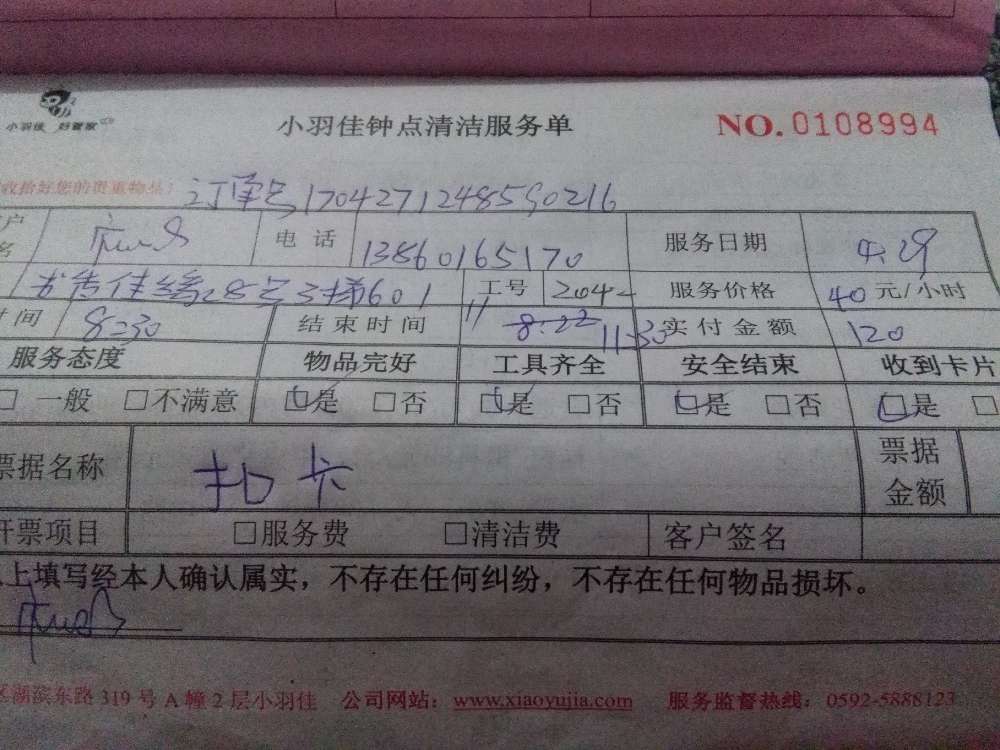 小羽佳 好管家
小羽佳钟点清洁服务单 NO.0108994
收拾好您的贵重物品! 订单号1704271248590216
户 电话 13860165170 服务日期 4.29
28号3梯601 工号 2042 服务价格 40元/小时
时间 8:30 结束时间 11:30 实付金额 120
服务态度 物品完好 工具齐全 安全结束 收到卡片
□一般 □不满意 □是 □否 □是 □否 □是 □否 □是 □
票据名称 扣卡 票据金额
开票项目 □服务费 □清洁费 客户签名
上填写经本人确认属实，不存在任何纠纷，不存在任何物品损坏。
区湖滨东路319号A幢2层小羽佳 公司网站：www.xiaoyujia.com 服务监督热线：0592-5888123